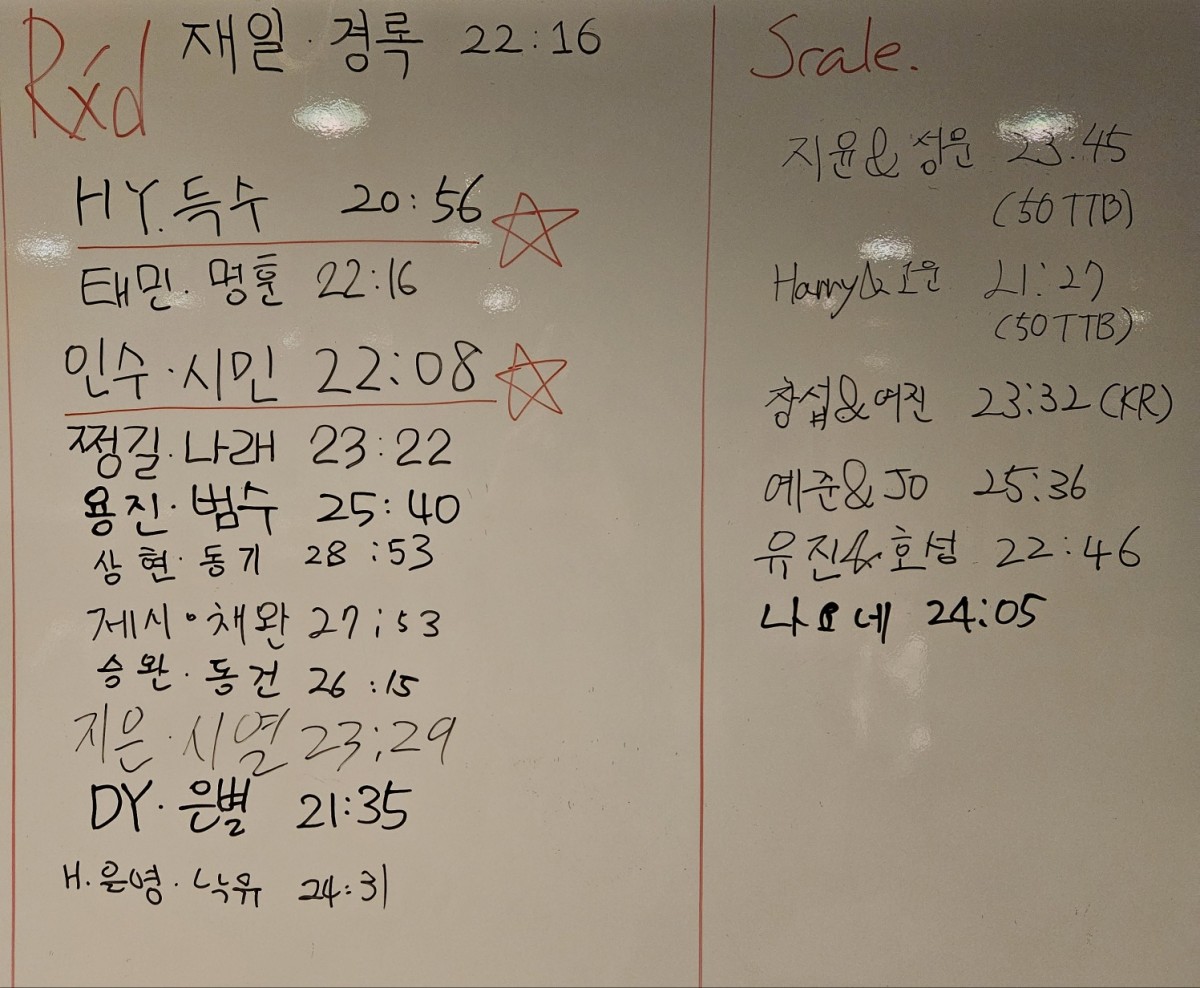 Rxd 재일·경록 22:16
HY.득수 20:56
태민·명훈 22:16
인수·시민 22:08
쩡길·나래 23:22
용진·범수 25:40
상현·동기 28:53
제시·채완 27;53
승완·동건 26:15
지은·시열 23;29
DY·은별 21:35
H.은영·낙유 24:31
Scale.
지윤&성문 23:45
(50 TTB)
Harry& 21:27
(50 TTB)
창섭&여진 23:32 (KR)
예준&JO 25:36
유진&호성 22:46
나요네 24:05